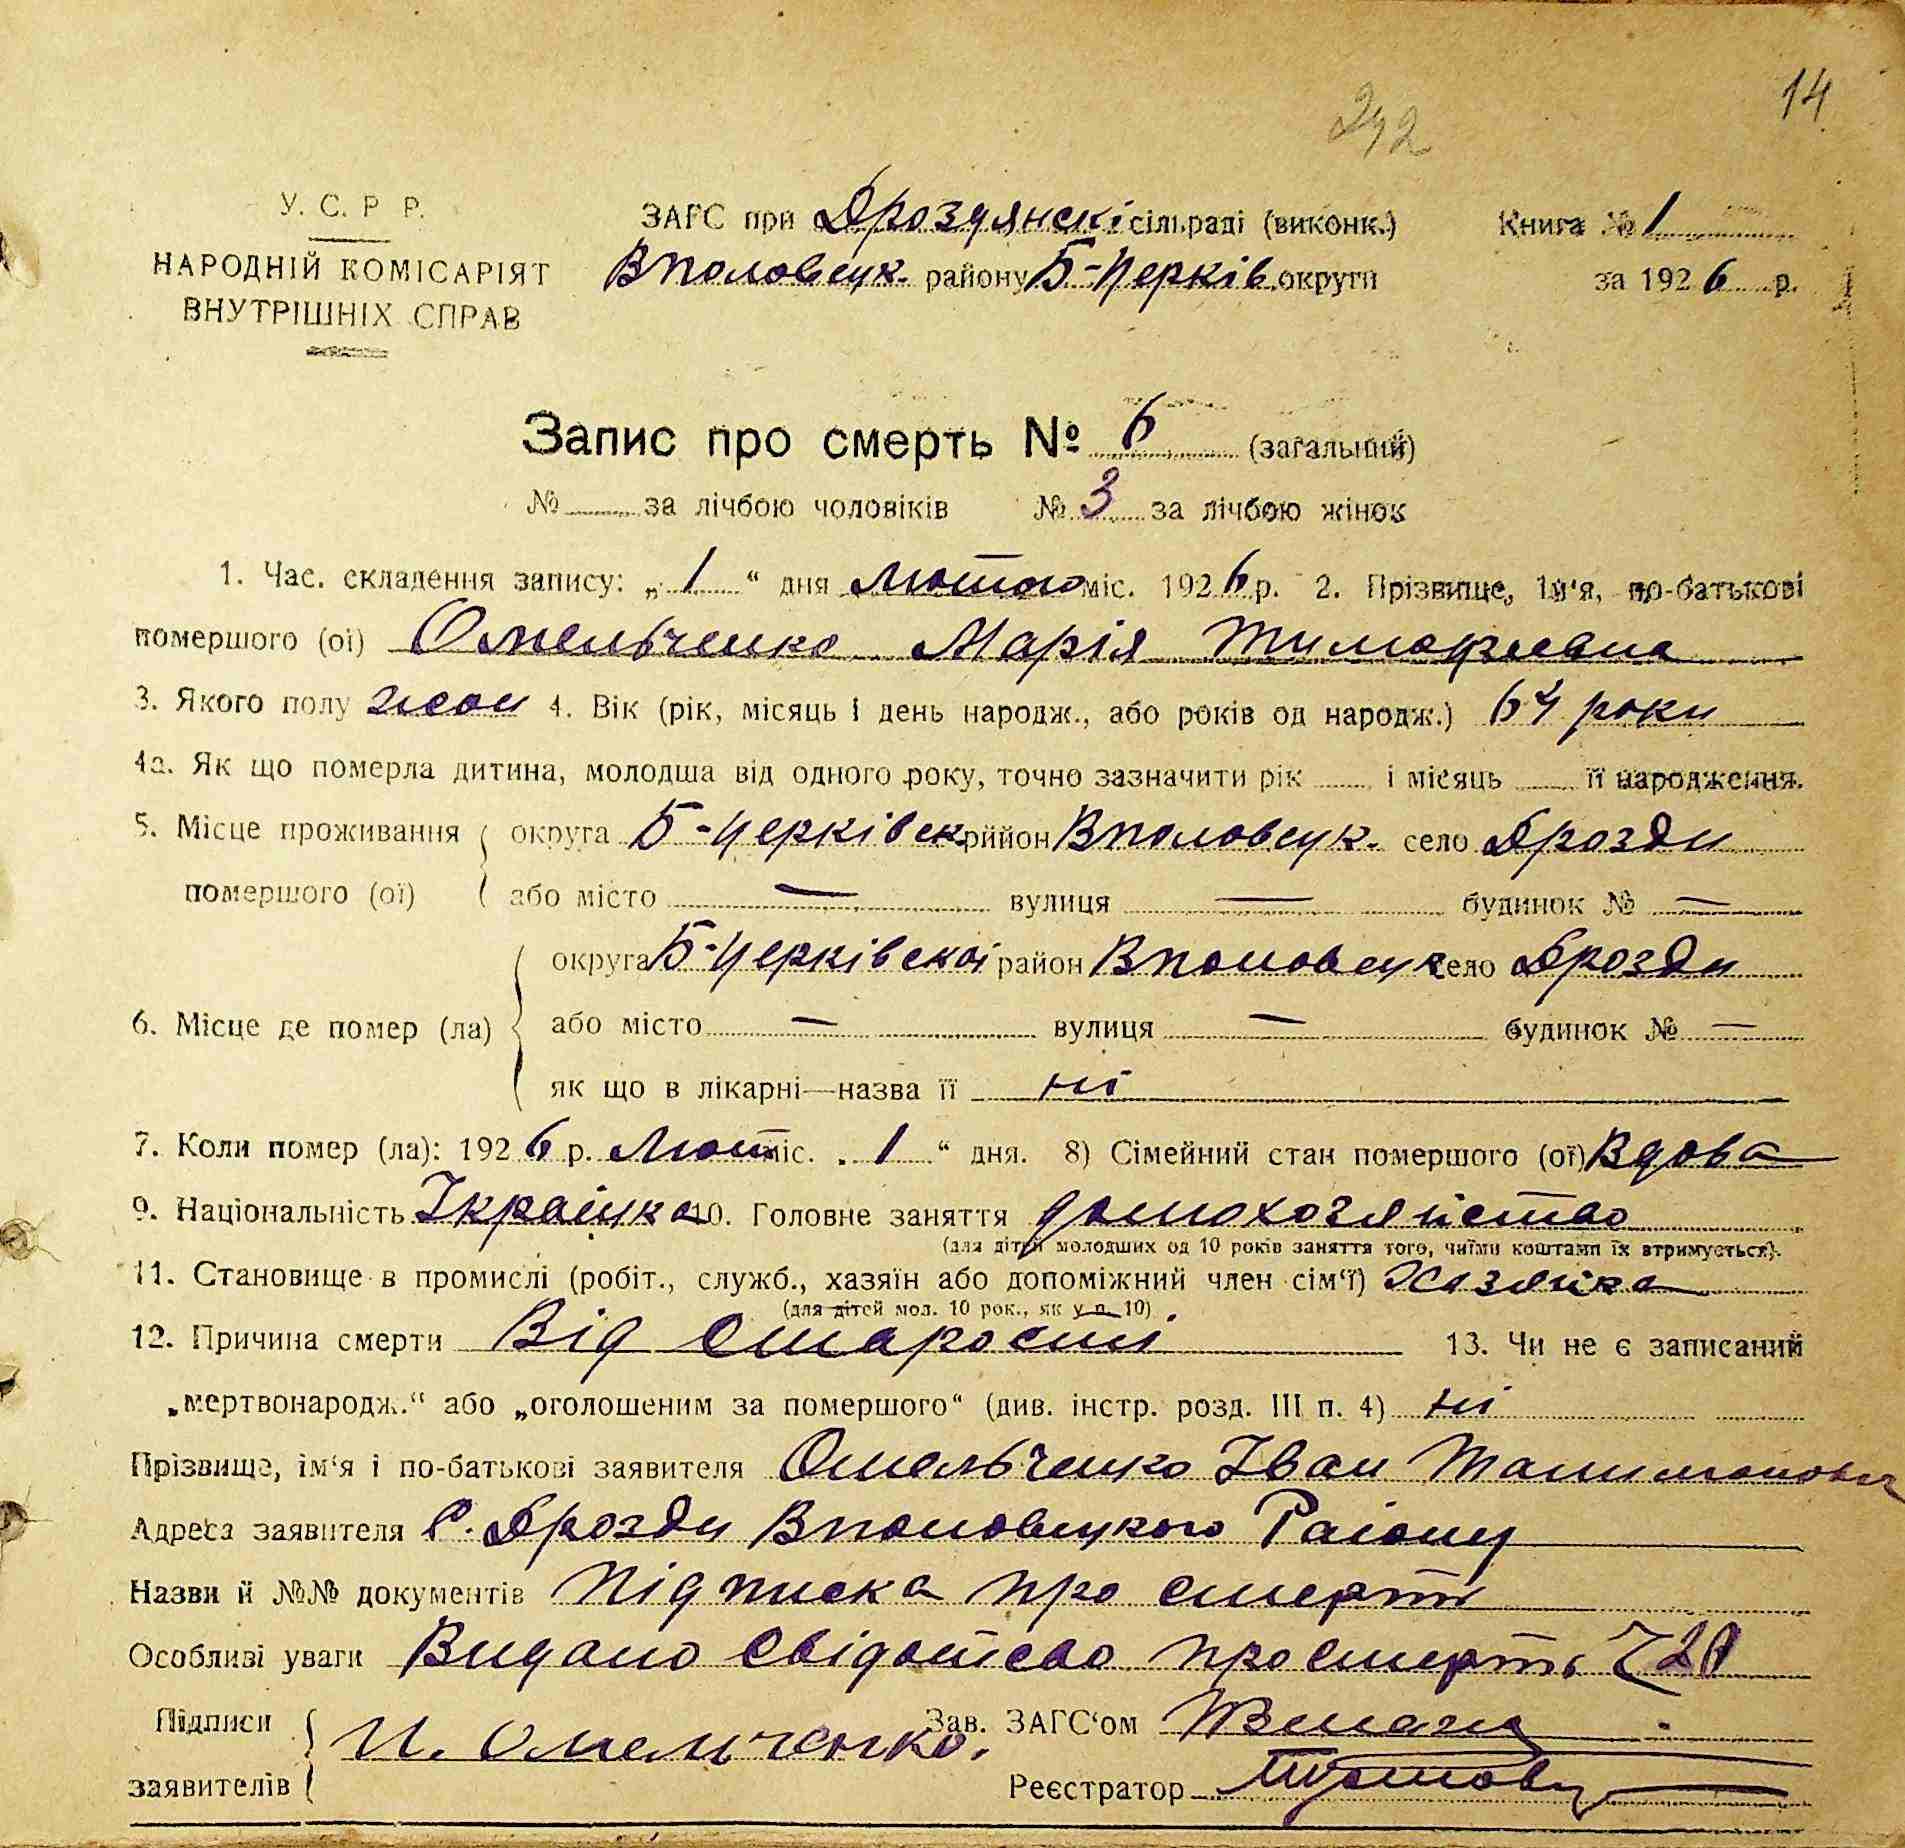 14
242
У. С. Р. Р.
НАРОДНІЙ КОМІСАРІЯТ
ВНУТРІШНІХ СПРАВ
ЗАГС при Дроздянскі сільраді (виконк.)
Вполовецк. району Б-Церків. округи
Книга № 1
за 1926 р.
Запис про смерть № 6 (загальний)
№ за лічбою чоловіків № 3 за лічбою жінок
1. Час. складення запису: „ 1 “ дня лютого міс. 1926 р. 2. Прізвище, ім'я, по-батькові
помершого (ої) Омельченко Марія Тимофеевна
3. Якого полу жон 4. Вік (рік, місяць і день народж., або років од народж.) 64 роки
4а. Як що померла дитина, молодша від одного року, точно зазначити рік і місяць її народження.
5. Місце проживання округа Б-Церківск. рййон Вполовецк. село Дрозди
помершого (ої) або місто — вулиця — будинок № —
округа Б-Церківскої район Вполовецк село Дрозди
6. Місце де помер (ла) або місто — вулиця — будинок № —
як що в лікарні—назва її ні
7. Коли помер (ла): 1926 р. Лют. міс. „ 1 “ дня. 8) Сімейний стан помершого (ої) Вдова
9. Національність Українка 10. Головне заняття домохозяйство
(для дітей молодших од 10 років заняття того, чиїми коштами їх втримується).
11. Становище в промислі (робіт., служб., хазяїн або допоміжний член сім'ї) Хазяйка
(для дітей мол. 10 рок., як у п. 10)
12. Причина смерти Від старости 13. Чи не є записаний
„мертвонародж.“ або „оголошеним за помершого“ (див. інстр. розд. III п. 4) ні
Прізвище, ім'я і по-батькові заявителя Омельченко Іван
Адреса заявителя С. Дрозди Вполовецкого Району
Назви й №№ документів Підписка про смерть
Особливі уваги Видано Свідотство про смерть
Підписи
заявителів И. Омельченко.
Зав. ЗАГС'ом
Реєстратор